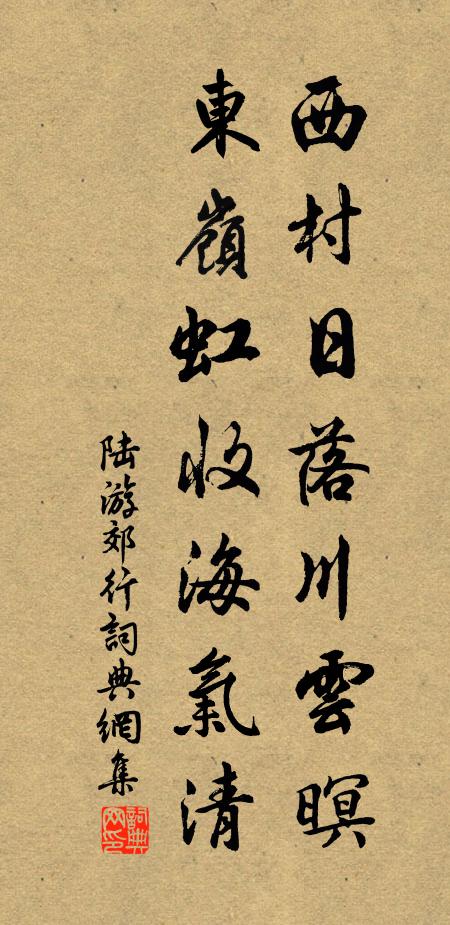 西村日落川雲暝
東嶺虹收海氣清
陸游郊行詞典網集
詞典网印